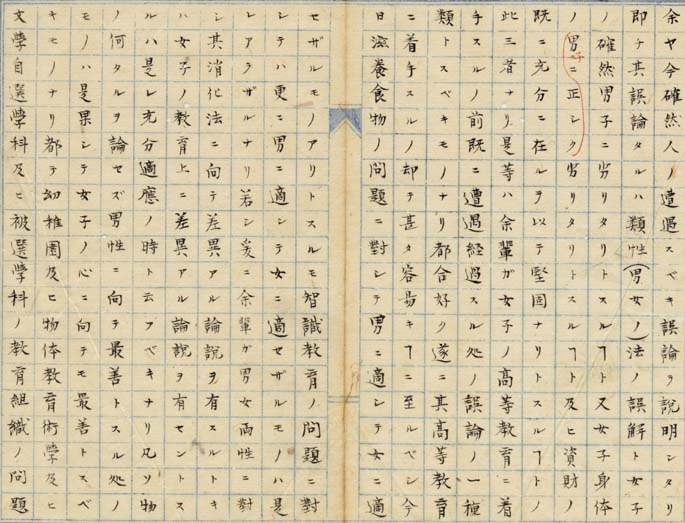 余ヤ今確然人ノ遭遇スベキ誤論ヲ説明シタリ
即ナ其誤論タルハ類性(男女ノ)法ノ誤解ト女子
ノ確然男子ニ劣リタリトスルヿト又女子身体
ノ男子ニ正シク劣リタリトスルヿト及ヒ資財ノ
既ニ充分ニ在ルヲ以テ堅固ナリトスルヿトノ
此三者ナリ是等ハ余輩ガ女子ノ高等教育ニ着
手スルノ前既ニ遭遇経過スル処ノ誤論ノ一種
類トスベキモノナリ都合好ク遂ニ其高等教育
ニ着手スルノ却テ甚タ容易キヿニ至ルベシ今
日滋養食物ノ問題ニ對シテ男ニ適シテ女ニ適
セザルモノアリトスルモ智識教育ノ問題ニ對
シテハ更ニ男ニ適シテ女ニ適セザルモノハ是
レアラザルナリ若シ爰ニ余輩ガ男女両性ニ對
シ其消化法ニ向テ差異アル論説ヲ有スルトキ
ハ女子ノ教育上ニ差異アル論説ヲ有セントス
ルハ是レ充分適應ノ時ト云フベキナリ凡ソ物
ノ何タルヲ論セズ男性ニ向テ最善トスル処ノ
モノハ是果シテ女子ノ心ニ向テモ最善トスベ
キモノナリ都テ幼稚園及ヒ物体教育術學及ヒ
文學自選學科及ヒ被選學科ノ教育組織ノ問題